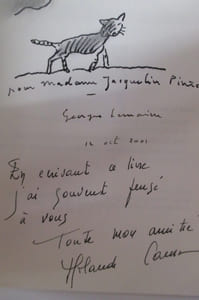 pour madame Jacqueline
Georges Lemoine
12 oct 2001
En écrivant ce livre
j'ai souvent pensé
à vous
Toute mon amitié